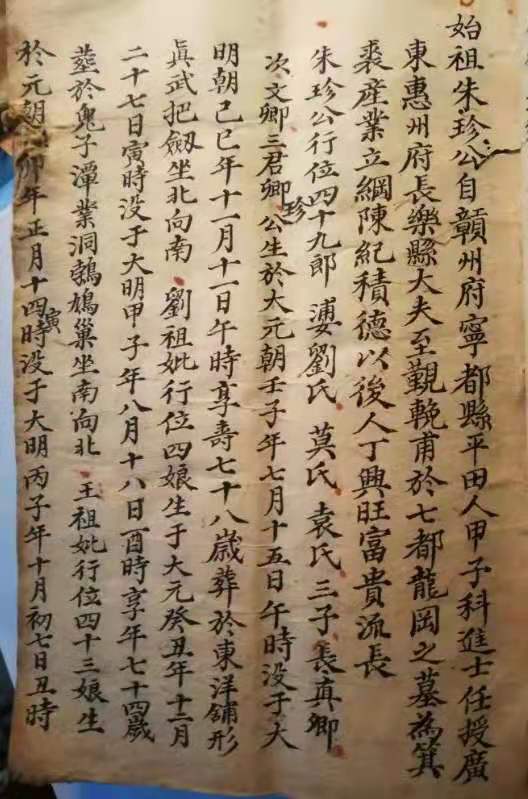 始祖朱珍公自贛州府寧都縣平田人甲子科進士任授廣
東惠州府長樂縣大夫至觀輓甫於七都龍岡之墓為箕
裘産業立綱陳紀積德以後人丁興旺富貴流長
朱珍公行位四十九郎 婆劉氏 莫氏 袁氏 三子 長真卿
次文卿三君卿 珍公生於大元朝壬子年七月十五日午時没于大
明朝己巳年十一月十一日午時享壽七十八歲葬於東洋舖形
真武把劔坐北向南 劉祖妣行位四娘生于大元癸丑年十二月
二十七日寅時没于大明甲子年八月十八日酉時享年七十四歲
塟於鬼子潭業洞鵓鳩巢坐南向北 王祖妣行位四十三娘生
於元朝卯年正月十四寅時没于大明丙子年十月初七日丑時